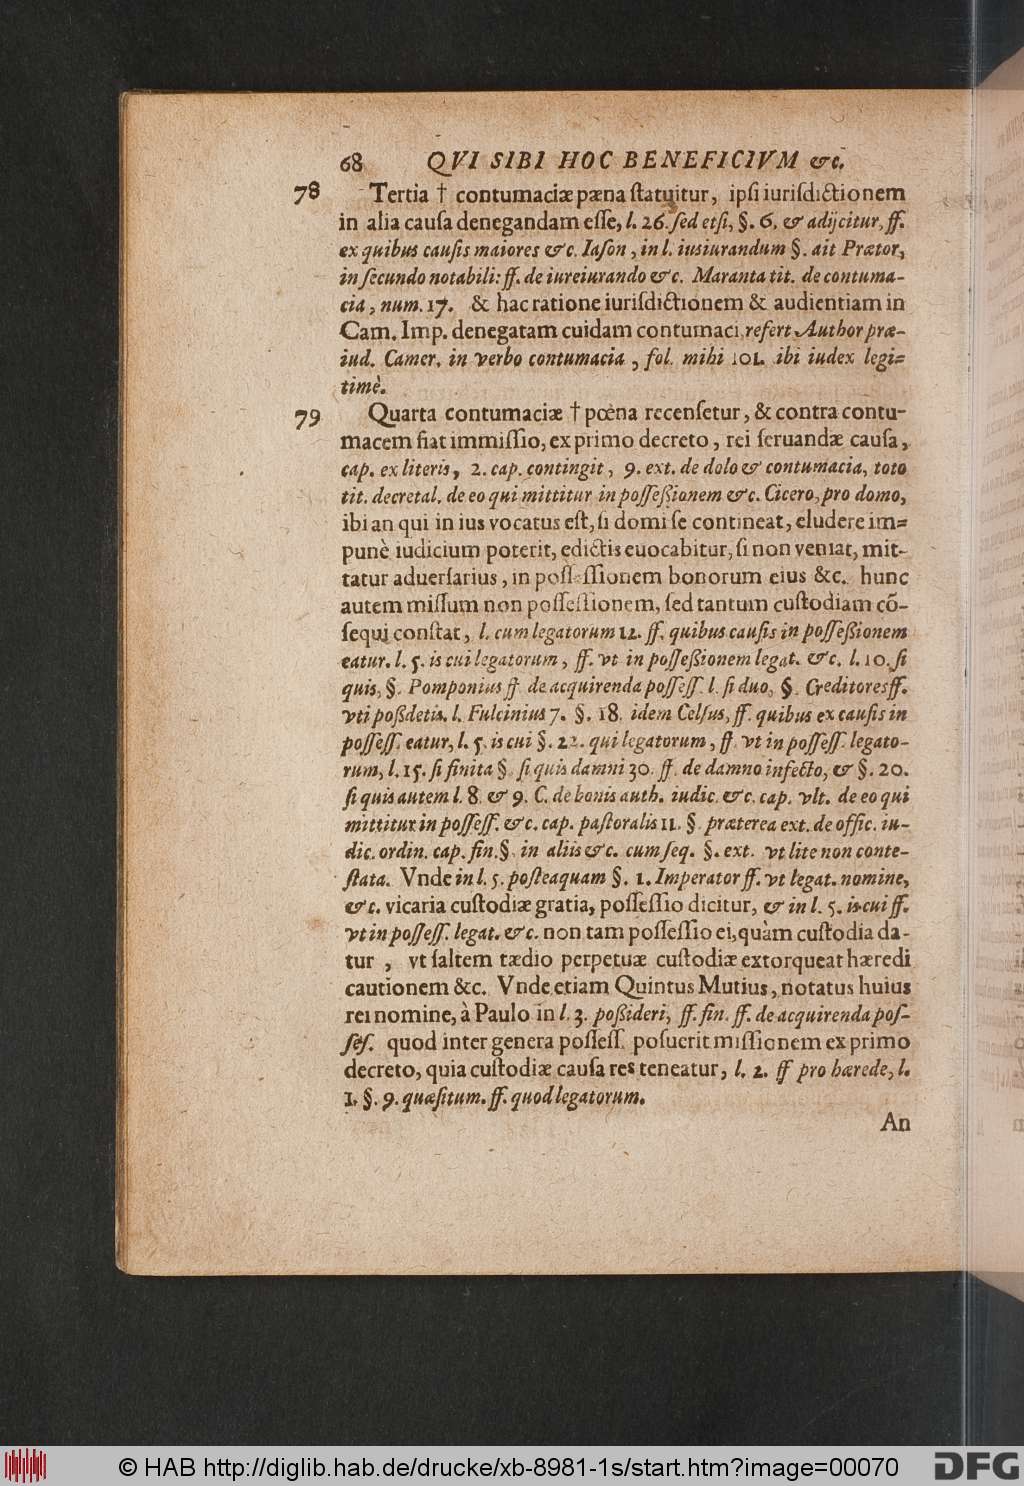 68 QVI SIBI HOC BENEFICIVM &c.
78 Tertia † contumaciæ pæna ſtatuitur, ipſi iuriſdictionem
in alia cauſa denegandam eſſe, l. 26. ſed etſi, §. 6. & adijcitur, ff.
ex quibus cauſis maiores &c. Iaſon, in l. iusiurandum §. ait Prætor,
in ſecundo notabili: ff. de iureiurando &c. Maranta tit. de contuma-
cia, num. 17. & hac ratione iuriſdictionem & audientiam in
Cam. Imp. denegatam cuidam contumaci, refert Author præ-
iud. Camer. in verbo contumacia, fol. mihi 101. ibi iudex legi=
timè.
79 Quarta contumaciæ † pœna recenſetur, & contra contu-
macem fiat immiſſio, ex primo decreto, rei ſeruandæ cauſa,
cap. ex literis, 2. cap. contingit, 9. ext. de dolo & contumacia, toto
tit. decretal. de eo qui mittitur in poſſeßionem &c. Cicero, pro domo,
ibi an qui in ius vocatus eſt, ſi domi ſe contineat, eludere im=
punè iudicium poterit, edictis euocabitur, ſi non veniat, mit-
tatur aduerſarius, in poſſeſſionem bonorum eius &c. hunc
autem miſſum non poſſeſſionem, ſed tantum cuſtodiam cõ-
ſequi conſtat, l. cum legatorum 12. ff. quibus cauſis in poſſeßionem
eatur. l. 5. is cui legatorum, ff. vt in poſſeßionem legat. &c. l. 10. ſi
quis, §. Pomponius ff. de acquirenda poſſeſſ. l. ſi duo, §. Creditores ff.
vti poßdetis. l. Fulcinius 7. §. 18. idem Celſus, ff. quibus ex cauſis in
poſſeſſ. eatur, l. 5. is cui §. 22. qui legatorum, ff. vt in poſſeſſ. legato-
rum, l. 15. ſi finita §. ſi quis damni 30. ff. de damno infecto, & §. 20.
ſi quis autem l. 8. & 9. C. de bonis auth. iudic. &c. cap. vlt. de eo qui
mittitur in poſſeſſ. &c. cap. paſtoralis 11. §. præterea ext. de offic. iu-
dic. ordin. cap. fin. §. in aliis &c. cum ſeq. §. ext. vt lite non conte-
ſtata. Vnde in l. 5. poſteaquam §. 1. Imperator ff. vt legat. nomine,
&c. vicaria cuſtodiæ gratia, poſſeſſio dicitur, & in l. 5. is cui ff.
vt in poſſeſſ. legat. &c. non tam poſſeſſio ei, quàm cuſtodia da-
tur, vt ſaltem tædio perpetuæ cuſtodiæ extorqueat hæredi
cautionem &c. Vnde etiam Quintus Mutius, notatus huius
rei nomine, à Paulo in l. 3. poßideri, ff. fin. ff. de acquirenda poſ-
ſeſ. quod inter genera poſſeſſ. poſuerit miſſionem ex primo
decreto, quia cuſtodiæ cauſa res teneatur, l. 2. ff pro hærede, l.
1. §. 9. quæſitum. ff. quod legatorum.
An
© HAB http://diglib.hab.de/drucke/xb-8981-1s/start.htm?image=00070
DFG